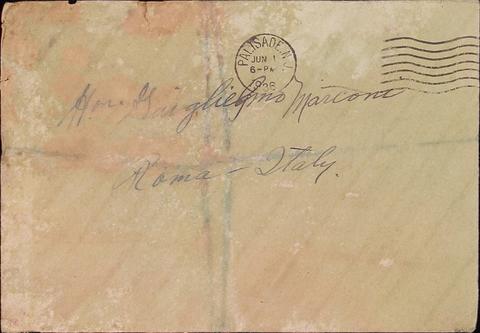 PALISADE, N.J.
JUN 1
6-PM
Hon. Guiglielmo Marconi
Roma - Italy.